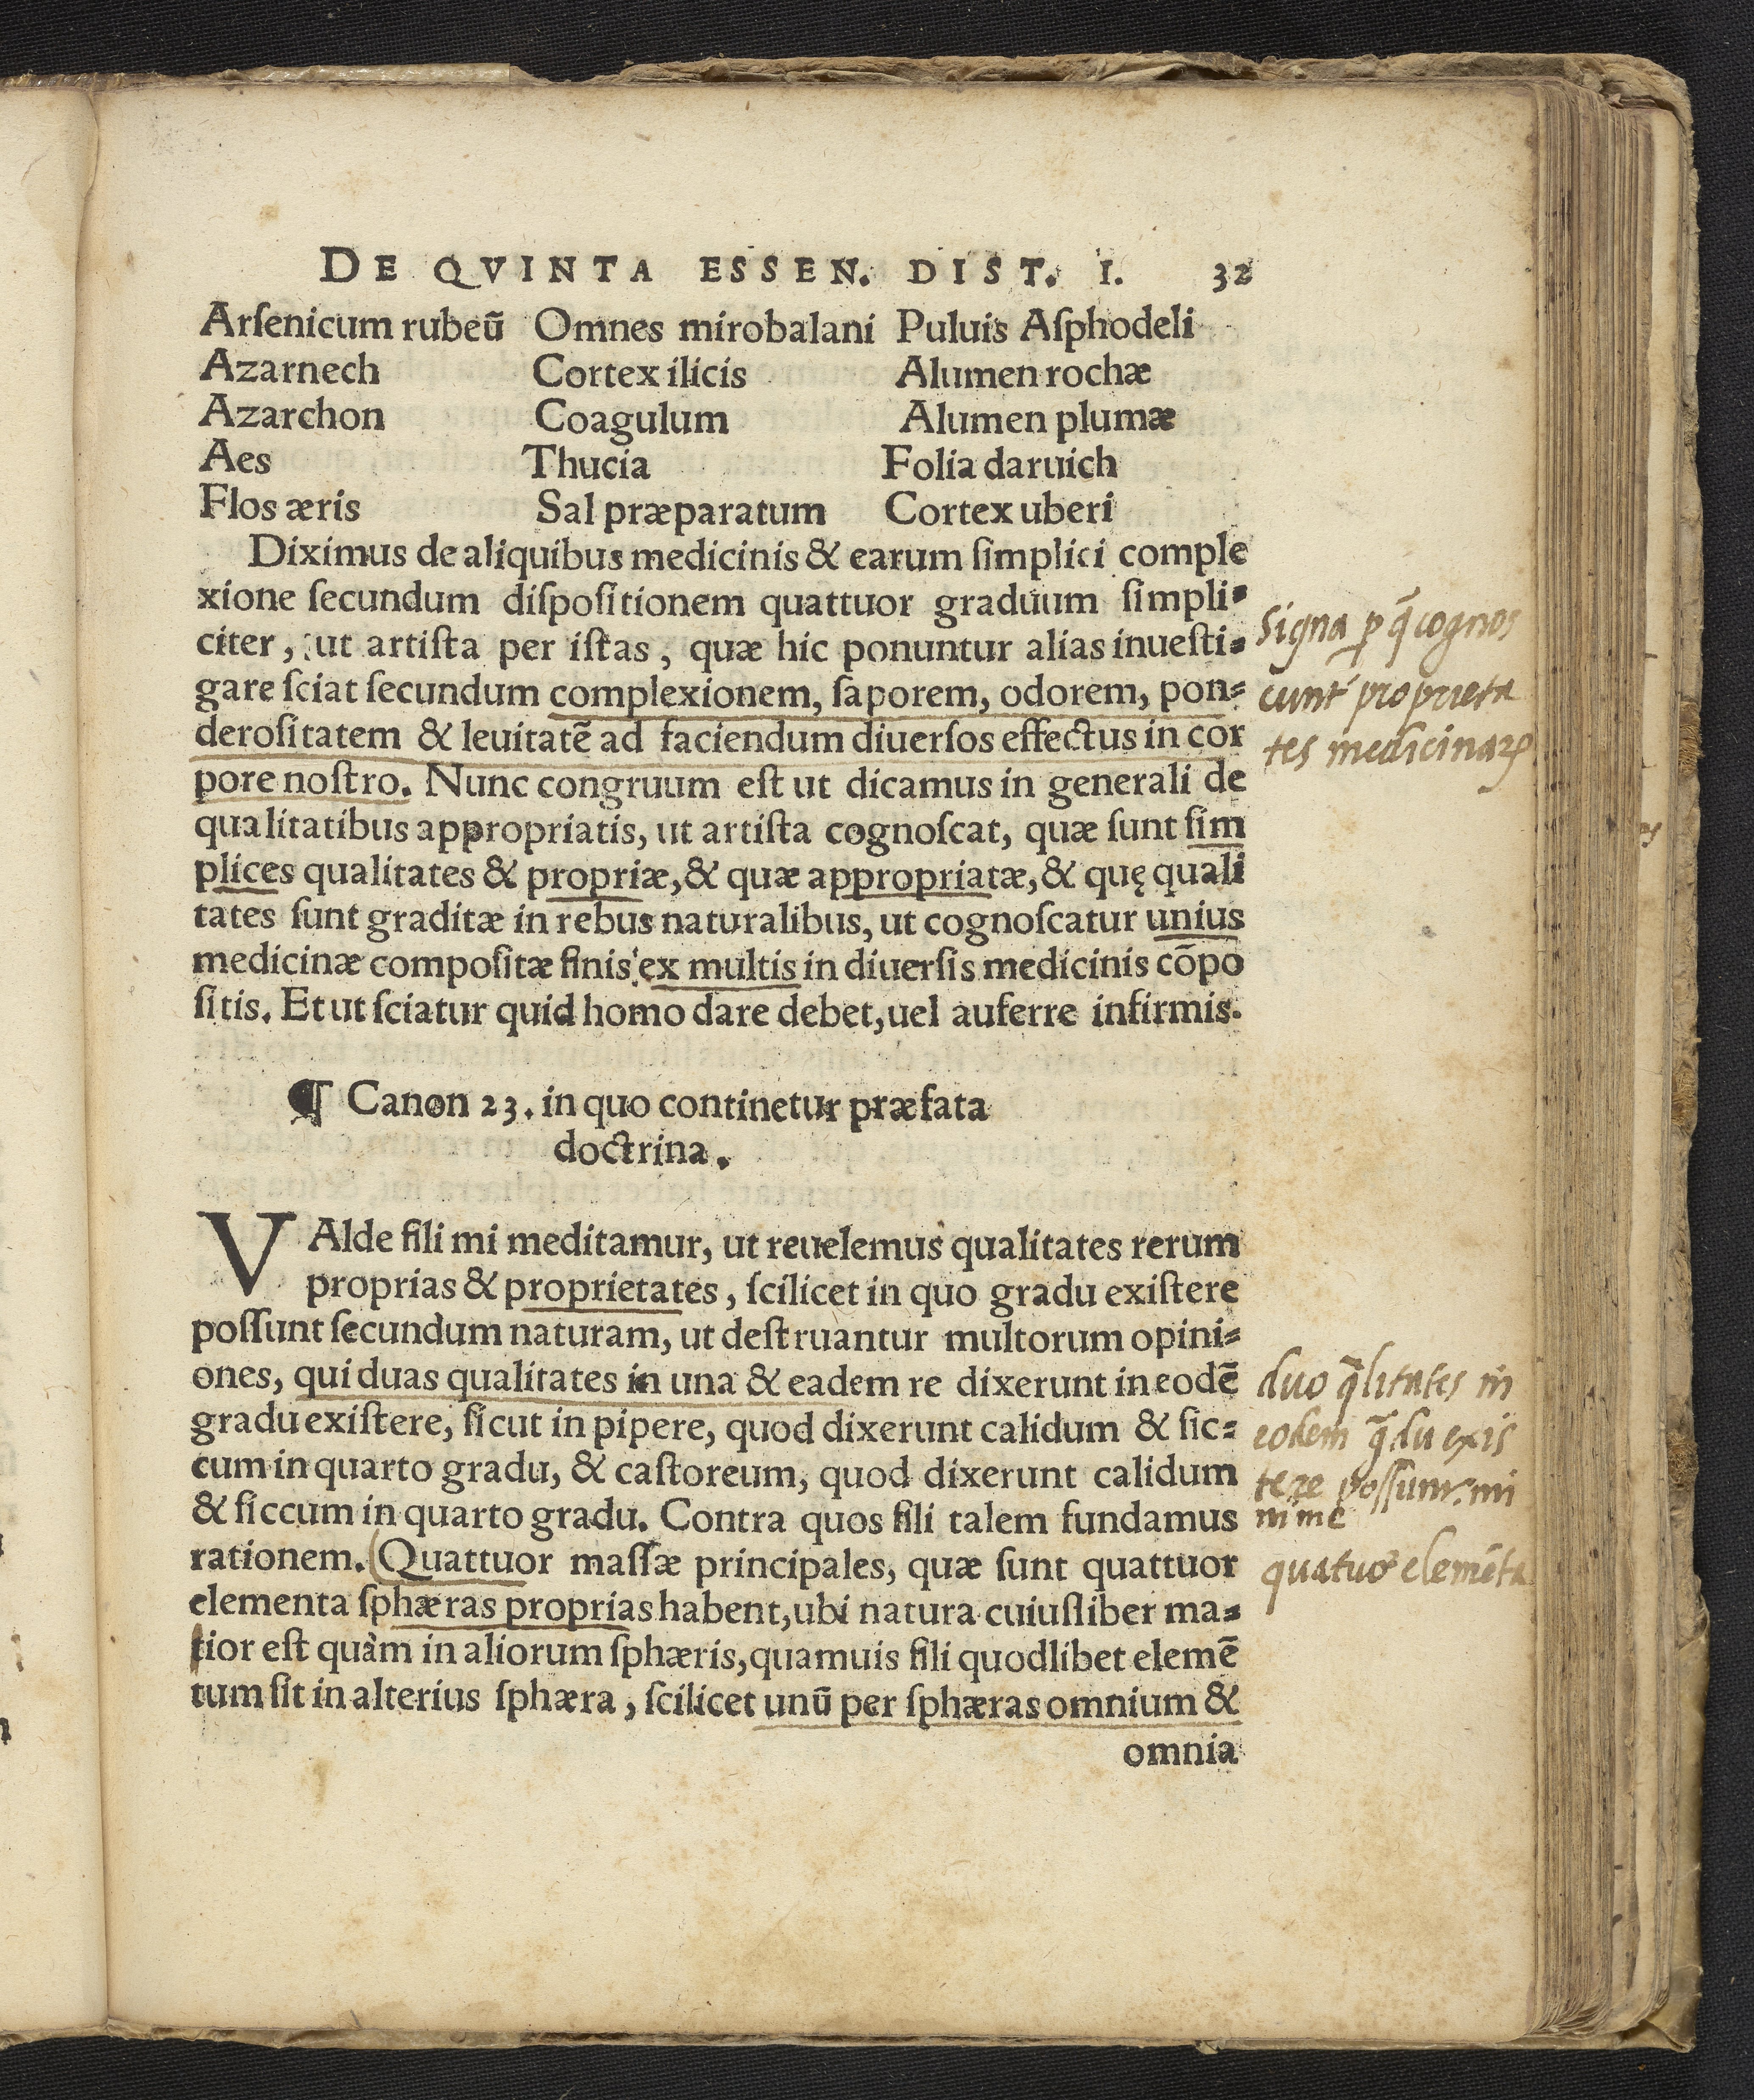 DE QVINTA ESSEN. DIST. I. 32
Arſenicum rubeū Omnes mirobalani Puluis Aſphodeli
Azarnech Cortex ilicis Alumen rochæ
Azarchon Coagulum Alumen plumæ
Aes Thucia Folia daruich
Flos æris Sal præparatum Cortex uberi
Diximus de aliquibus medicinis & earum ſimplici comple
xione ſecundum diſpoſitionem quattuor graduum ſimpli-
citer, ut artiſta per iſtas, quæ hic ponuntur alias inueſti-
gare ſciat ſecundum complexionem, ſaporem, odorem, pon-
deroſitatem & leuitatē ad faciendum diuerſos effectus in cor
pore noſtro. Nunc congruum eſt ut dicamus in generali de
qualitatibus appropriatis, ut artiſta cognoſcat, quæ ſunt ſim
plices qualitates & propriæ, & quæ appropriatæ, & quę quali
tates ſunt graditæ in rebus naturalibus, ut cognoſcatur unius
medicinæ compoſitæ finis ex multis in diuerſis medicinis cōpo
ſitis. Et ut ſciatur quid homo dare debet, uel auferre infirmis.
Signa p q̄ cognos
cunt' proprieta
tes medicinaꝝ
¶ Canon 23. in quo continetur præfata
doctrina.
VAlde fili mi meditamur, ut reuelemus qualitates rerum
proprias & proprietates, ſcilicet in quo gradu exiſtere
poſſunt ſecundum naturam, ut deſtruantur multorum opini-
ones, qui duas qualitates in una & eadem re dixerunt in eodē
gradu exiſtere, ſicut in pipere, quod dixerunt calidum & ſic-
cum in quarto gradu, & caſtoreum, quod dixerunt calidum
& ſiccum in quarto gradu. Contra quos fili talem fundamus
rationem. (Quattuor maſſæ principales, quæ ſunt quattuor
elementa ſphæras proprias habent, ubi natura cuiuſliber ma-
tior eſt quàm in aliorum ſphæris, quamuis fili quodlibet elemē
tum ſit in alterius ſphæra, ſcilicet unū per ſphæras omnium &
omnia
duo q̄litates in
eodem q̄du exis
tere possunt. mi
nime
quatuor elemēta